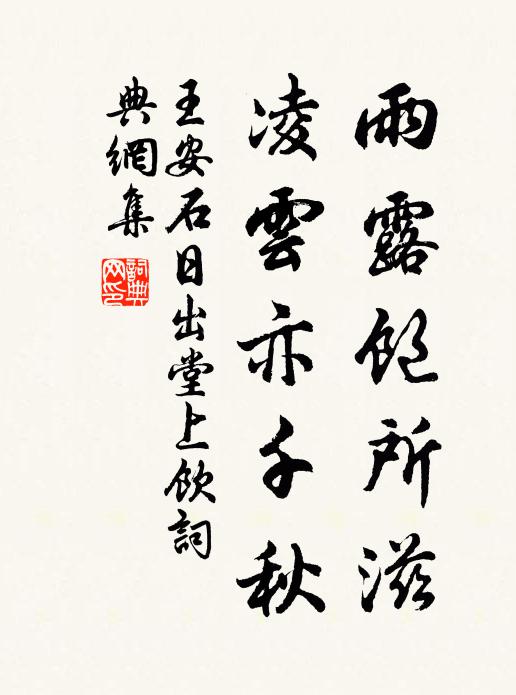 雨露飽所滋
凌雲亦千秋
王安石日出堂上飲詞
典網集
詞典
网印